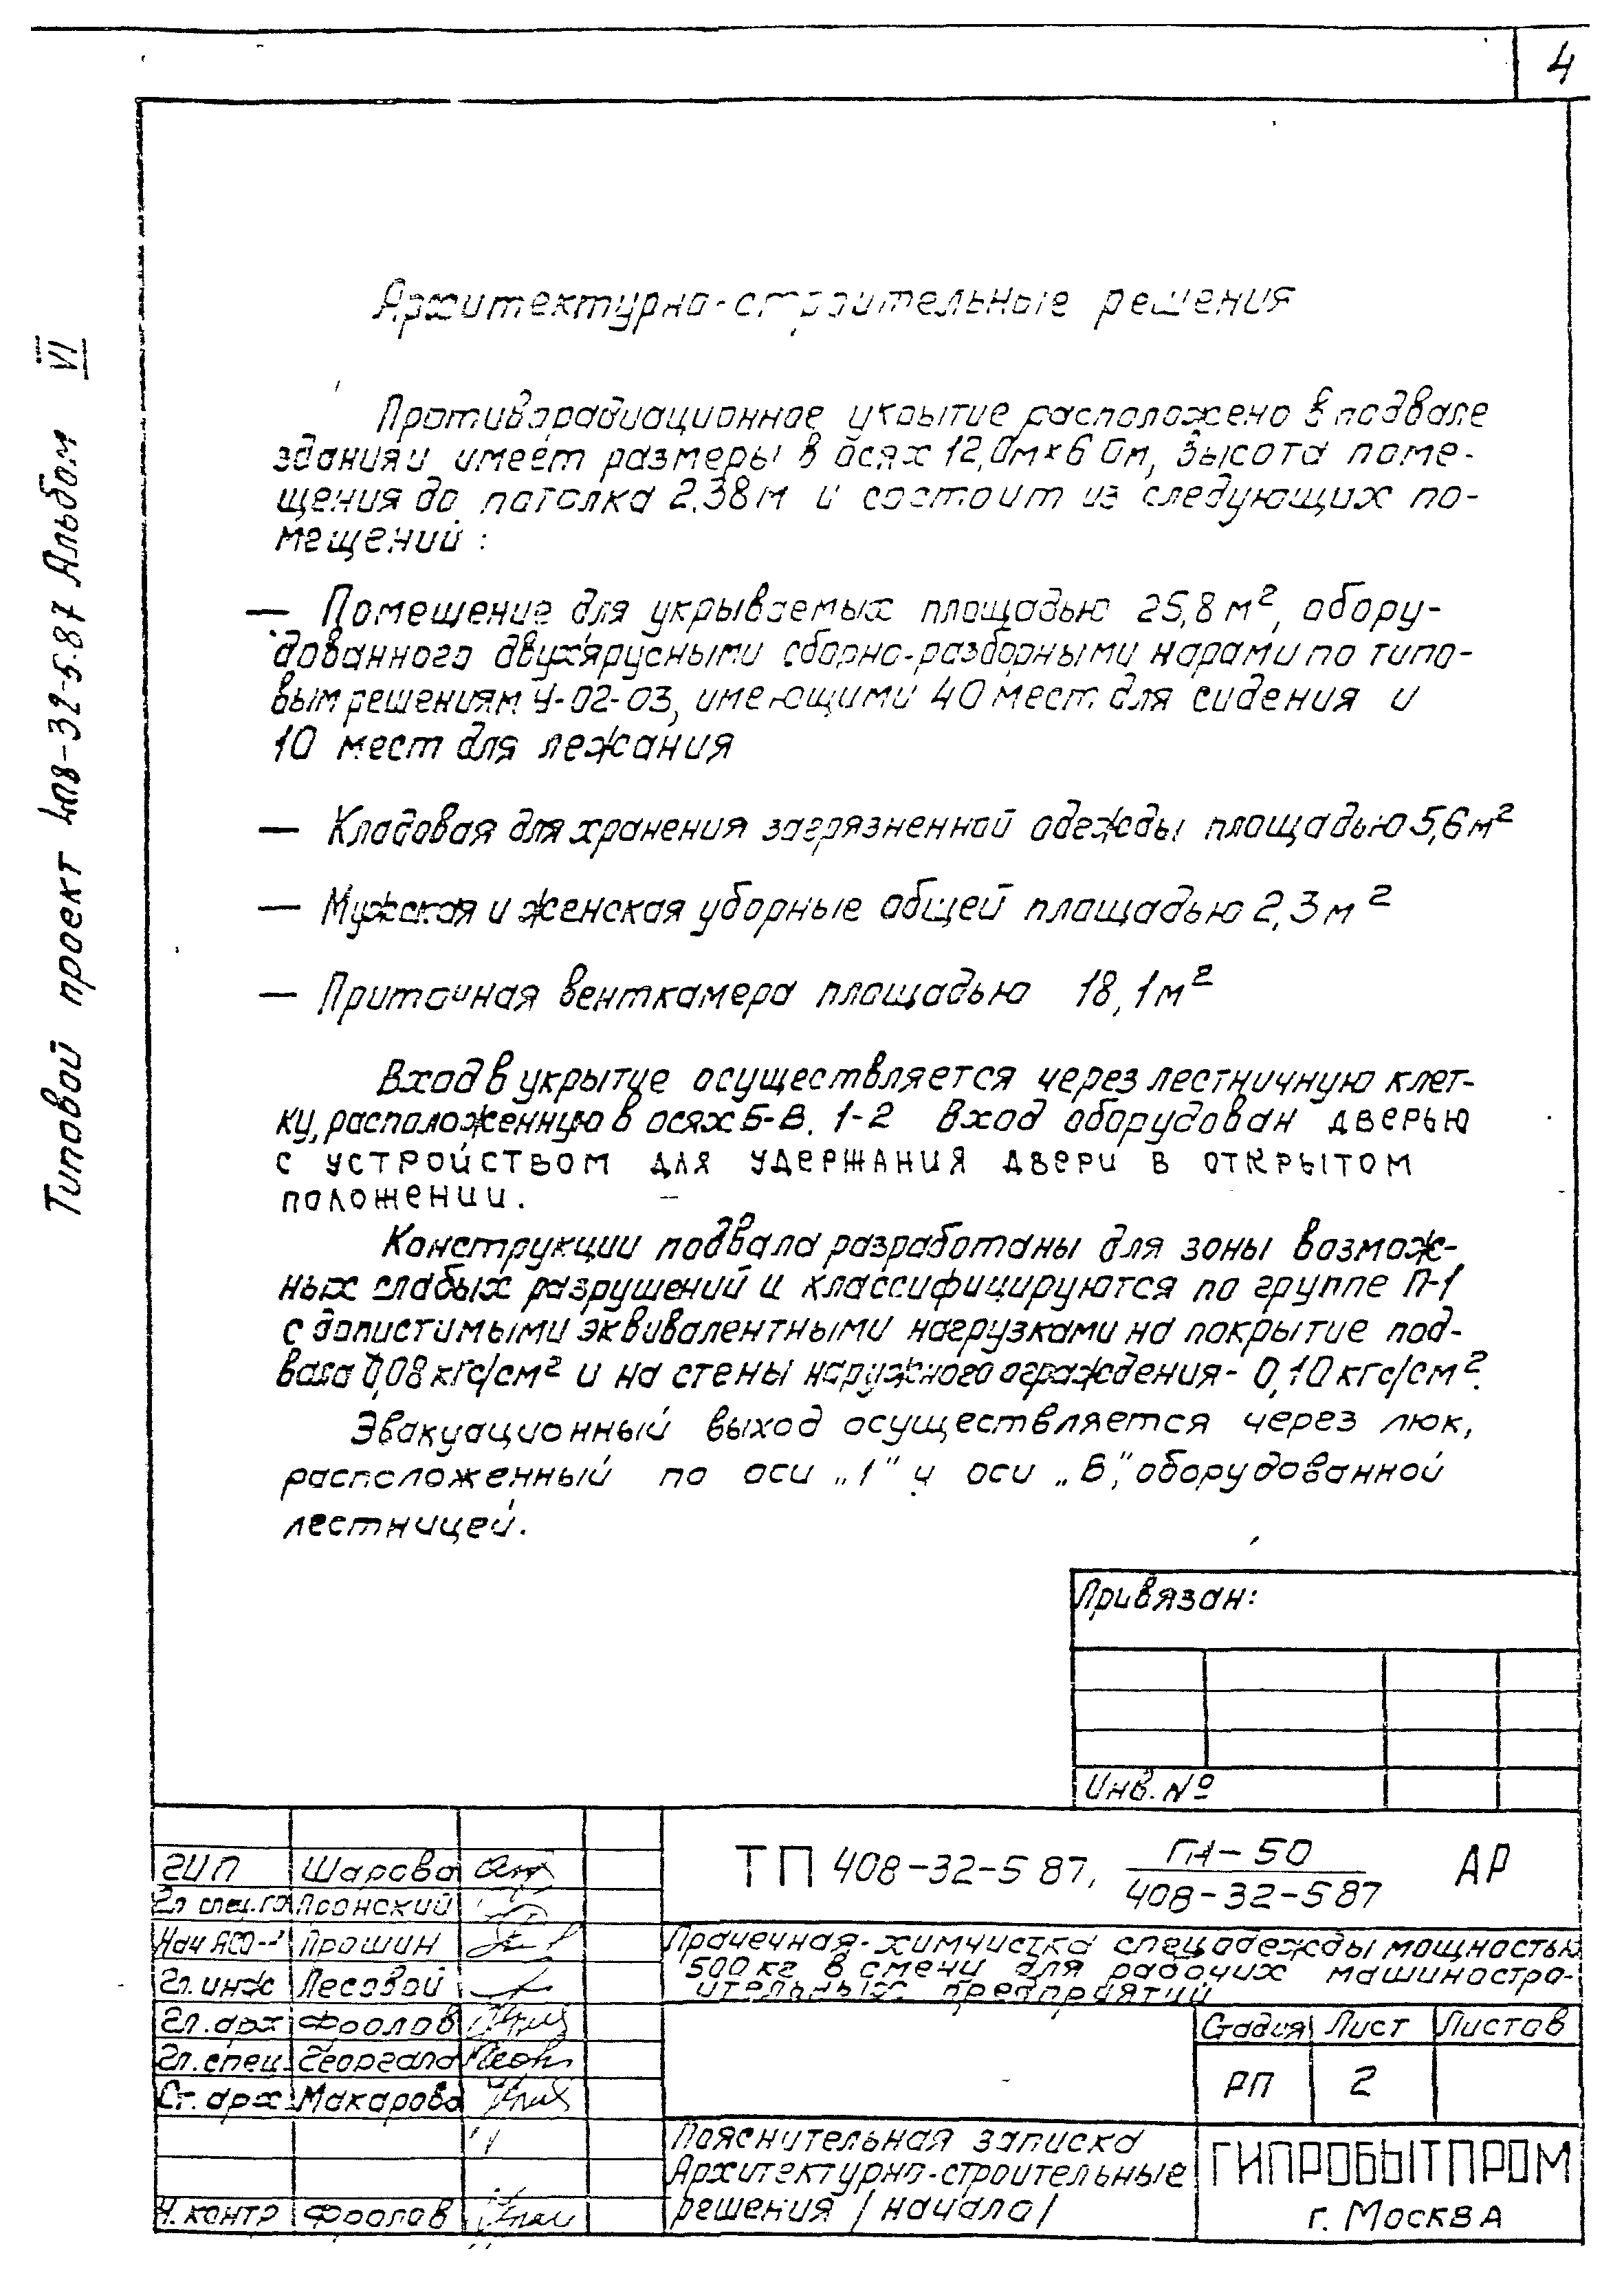 4
Типовой проект 408-32-5.87 Альбом VI
Архитектурно-строительные решения
Противорадиационное укрытие расположено в подвале
здания и имеет размеры в осях 12,0м×6 0м, высота поме-
щения до потолка 2.38м и состоит из следующих по-
мещений:
— Помещение для укрываемых площадью 25,8 м², обору-
дованного двухярусными сборно-разборными нарами по типо-
вым решениям У-02-03, имеющими 40 мест для сидения и
10 мест для лежания
— Кладовая для хранения загрязненной одежды площадью 5,6 м²
— Мужская и женская уборные общей площадью 2,3 м²
— Приточная венткамера площадью 18,1 м²
Вход в укрытие осуществляется через лестничную клет-
ку, расположенную в осях Б-В. 1-2 Вход оборудован дверью
с устройством для удержания двери в открытом
положении.
Конструкции подвала разработаны для зоны возмож-
ных слабых разрушений и классифицируются по группе П-1
с допистимыми эквивалентными нагрузками на покрытие под-
вала 0,08 кгс/см² и на стены наружного ограждения - 0,10 кгс/см².
Эвакуационный выход осуществляется через люк,
расположенный по оси „1" и оси „В", оборудованной
лестницей.
Привязан:
Инв. №
ГИП Шарова
Гл спец. ГО Пронский
Нач АСО-1 Прошин
Гл. инж Лесовой
Гл. арх Фролов
Гл. спец. Георгала
Ст. арх. Макарова
Н. контр Фролов
ТП 408-32-5 87, ГА-50 АР
408-32-5 87
Прачечная-химчистка спецодежды мощностью
500 кг в смену для рабочих машиностро-
ительных предприятий
Стадия Лист Листов
РП 2
Пояснительная записка
Архитектурно-строительные
решения /начало/
ГИПРОБЫТПРОМ
г. Москва